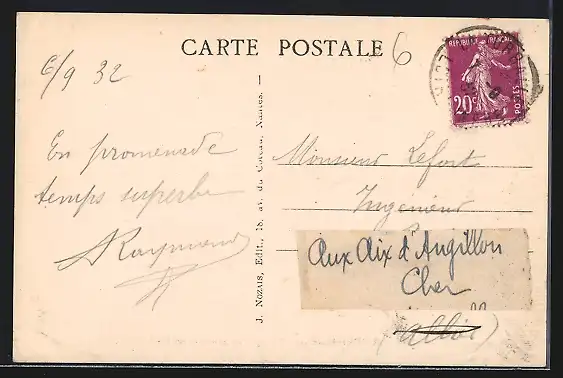 CARTE POSTALE
6
REPUBLIQUE FRANÇAISE
20c
POSTES
6/9 32
En promenade
temps superbe
Raymond
J. Nozais, Edit., 18, av. du Coteau, Nantes. —
Monsieur Lefort
Ingenieur
Aux Aix d'Angillon
Cher
(Allier)